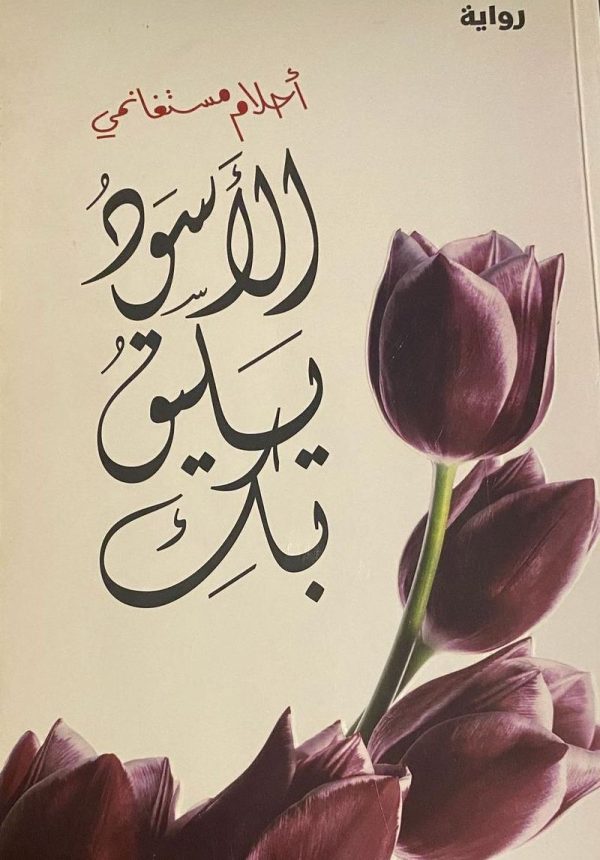 رواية
أحلام مستغانمي
الأَسوَدُ
يَليقُ
بكِ